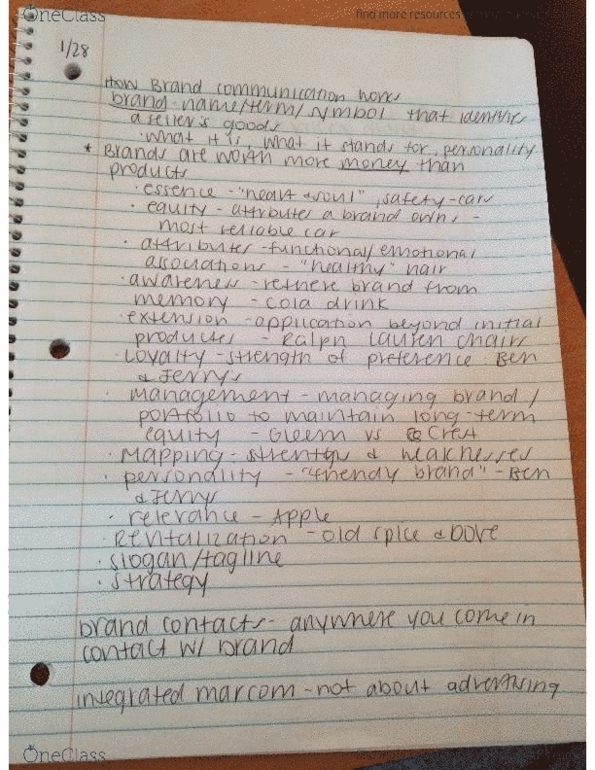 OneClass
find more resources
1/28
How Brand communication works
brand name/term/symbol that identifies
a seller's goods
· what it is, what it stands for, personality
* Brands are worth more money than
products
· essence - "heart & soul", safety - cars
· equity - attributes a brand owns -
most reliable car
· attributes - functional/emotional
associations - "healthy" hair
· awareness - retrieve brand from
memory - cola drink
· extension - application beyond initial
products - Ralph Lauren chairs
· Loyalty - strength of preference Ben
& Jerrys
· management - managing brand /
portfolio to maintain long-term
equity - Gleem vs Crest
· Mapping - strengths & weaknesses
· personality - "friendly brand" - Ben
& Jerry
· relevance - Apple
· Revitalization - old spice & Dove
· slogan/tagline
· strategy
brand contacts - anywhere you come in
contact w/ brand
integrated marcom - not about advertising
OneClass